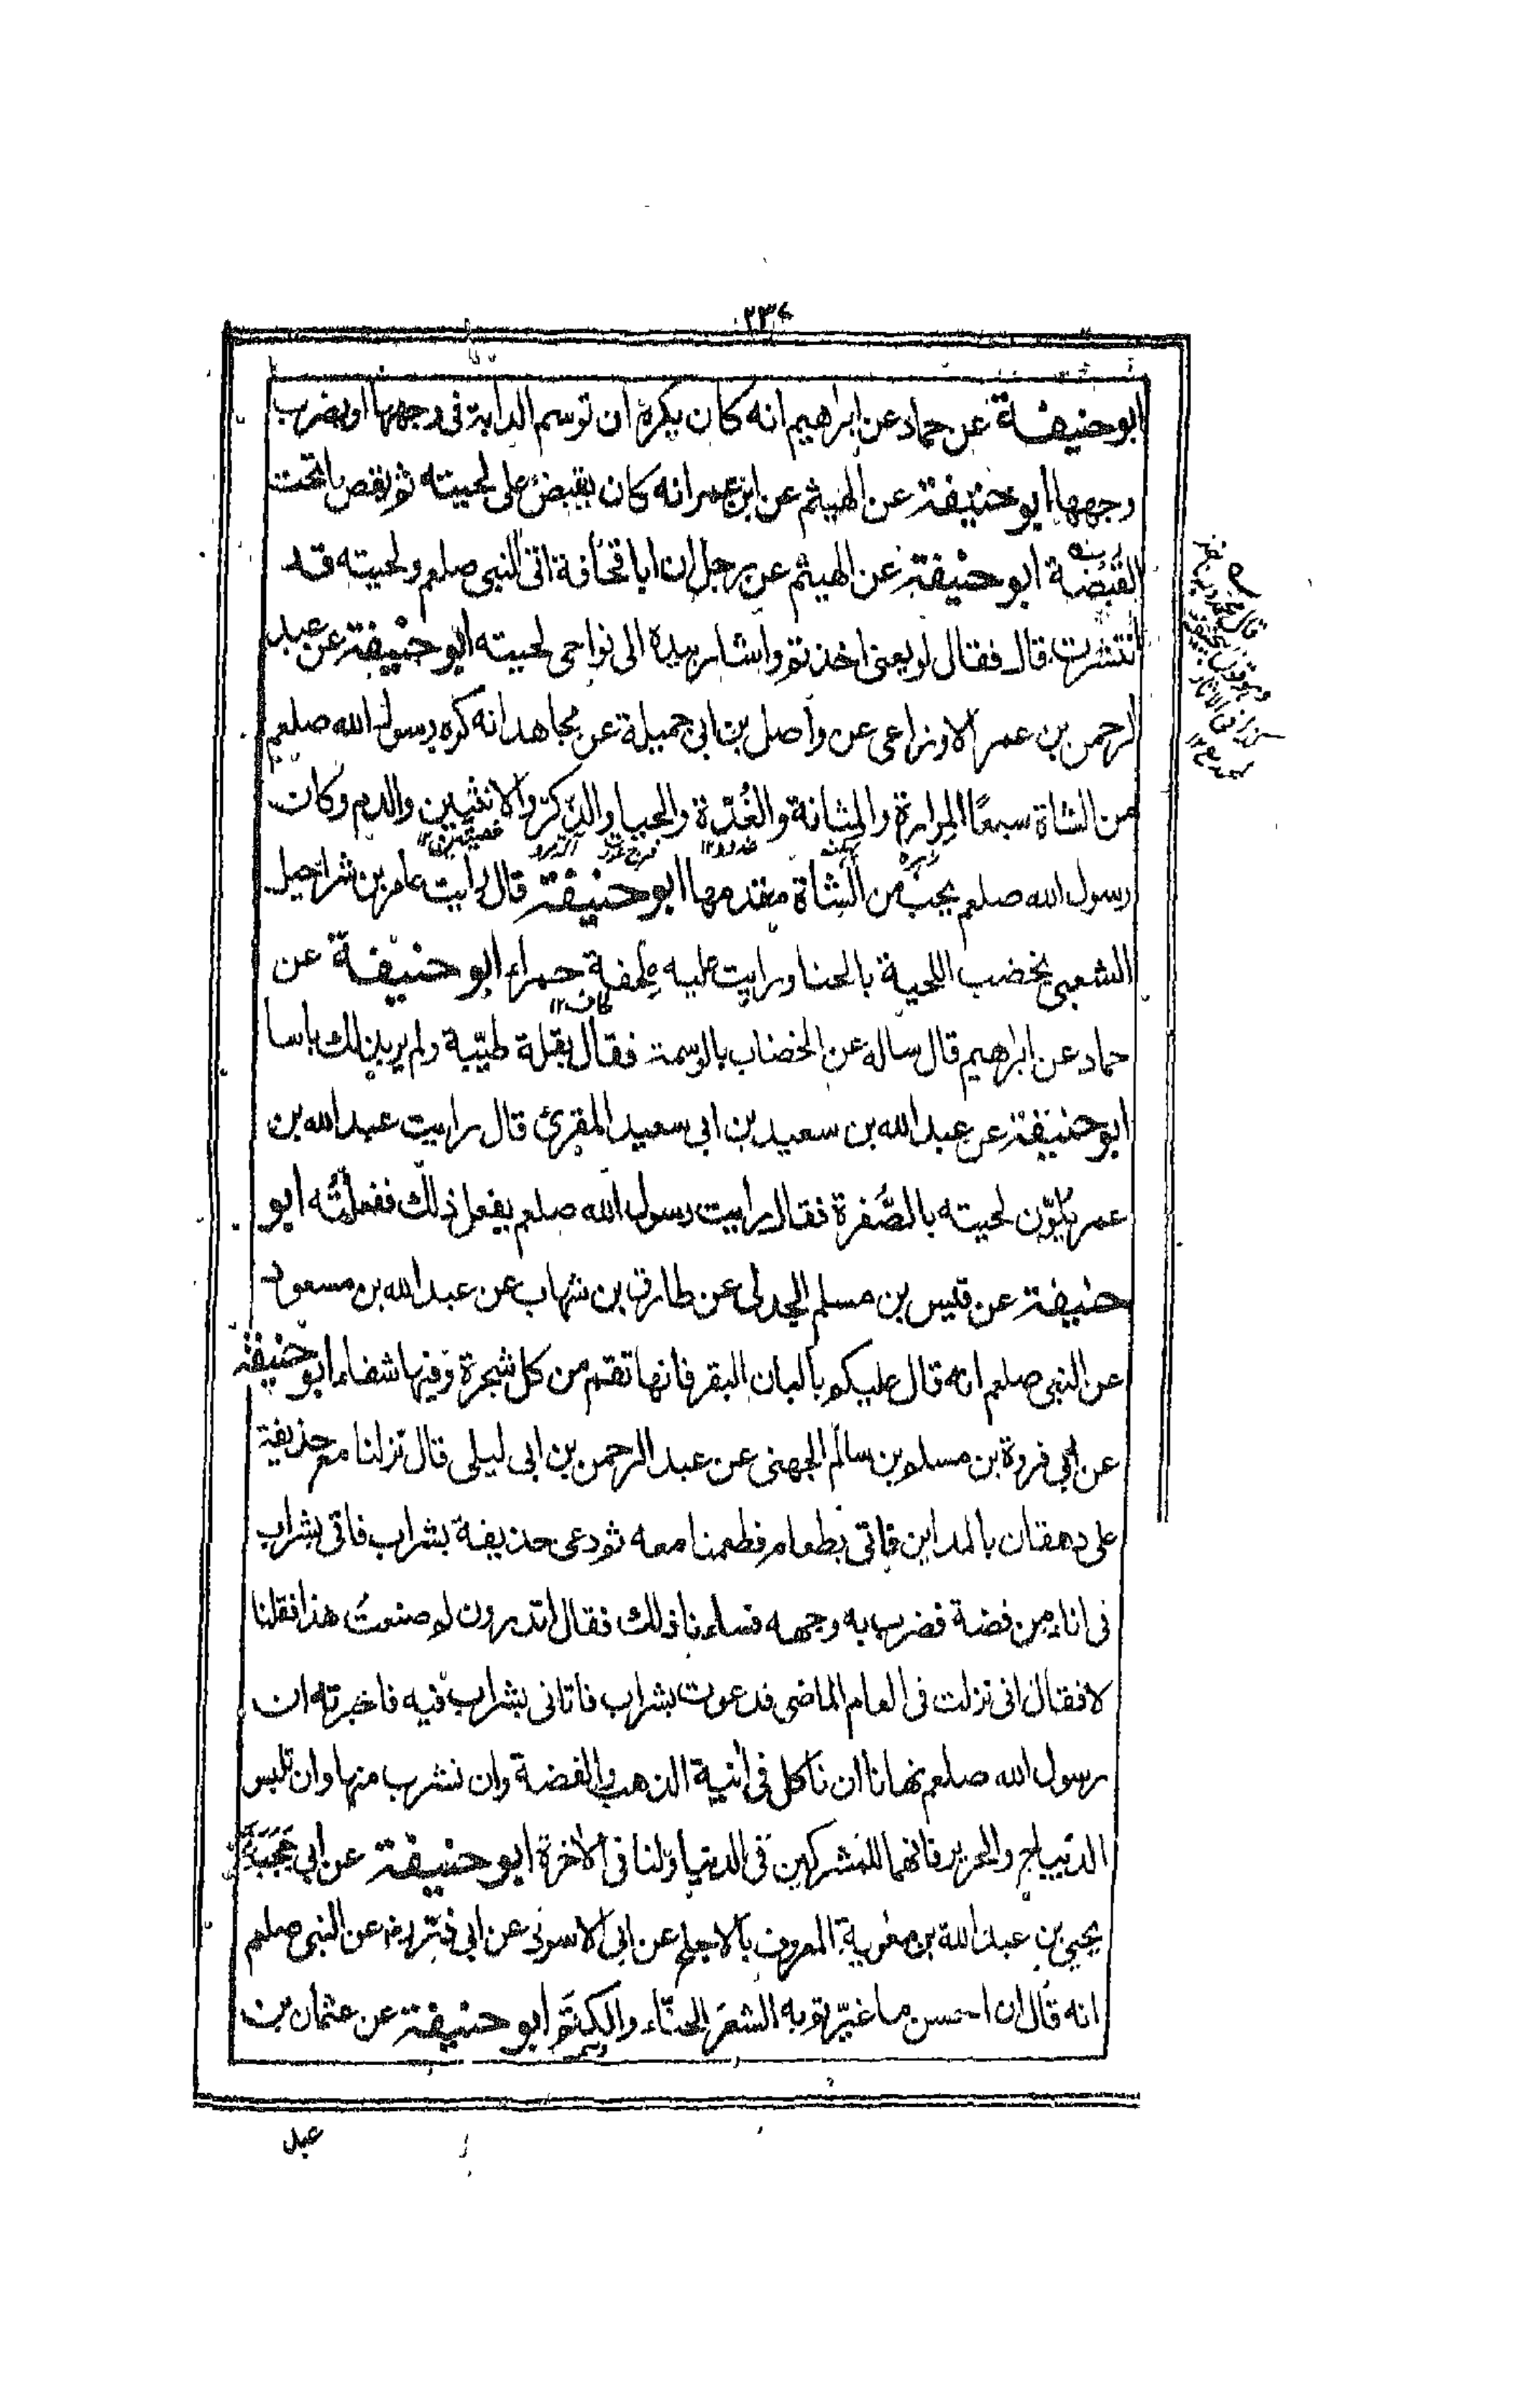 ابو حنيفة عن حماد عن ابراهيم انه كان يكره ان توسم الدابة فى وجهها او يضرب
وجهها ابو حنيفة عن الهيثم عن ابن عمر انه كان يقبض على لحيته ثم يقص ما تحت
القبضة ابو حنيفة عن الهيثم عن رجل ان ابا قحافة اتى النبى صلعم ولحيته قد
انتشرت قال فقال لو يعنى اخذتم واشار بيده الى نواحى لحيته ابو حنيفة عن عبد
الرحمن بن عمر الاوزاعى عن واصل بن ابى جميلة عن مجاهد انه كره رسول الله صلعم
من الشاة سبعًا المرارة والمثانة والغُدّة والحيا والذكر والانثيين والدم وكان
رسول الله صلعم يحب من الشاة مقدمها ابو حنيفة قال رايت عامر بن شراحيل
الشعبى يخضب اللحية بالحنا ورايت عليه ملحفة حمراء ابو حنيفة عن
حماد عن ابراهيم قال ساله عن الخضاب بالوسمة فقال بقلة طيّبة ولم ير بذلك باسا
ابو حنيفة عن عبد الله بن سعيد بن ابى سعيد المقرئ قال رايت عبد الله بن
عمر يُلوّن لحيته بالصُّفرة فقال رايت رسول الله صلعم يفعل ذلك ففعلتُه ابو
حنيفة عن قيس بن مسلم الجدلى عن طارق بن شهاب عن عبد الله بن مسعود
عن النبى صلعم انه قال عليكم بالبان البقر فانها تقم من كل شجرة وفيها شفاء ابو حنيفة
عن ابي فروة بن مسلم بن سالم الجهنى عن عبد الرحمن بن ابى ليلى قال نزلنا مع حذيفة
على دهقان بالمداين فاتى بطعام فطعمنا معه ثم دعى حذيفة بشراب فاتى بشراب
فى اناء من فضة فضرب به وجهه فساءنا ذلك فقال اتدرون لم صنعتُ هذا فقلنا
لا فقال انى نزلت فى العام الماضى فدعوت بشراب فاتانى بشراب فيه فاخبرته ان
رسول الله صلعم نهانا ان ناكل فى انية الذهب والفضة وان نشرب منها وان نلبس
الديباج والحرير فانهما للمشركين فى الدنيا ولنا فى الاخرة ابو حنيفة عن ابي حجية
يحيى بن عبد الله بن معوية المعروف بالاجلح عن ابى الاسود عن ابى ذر رض عن النبى صلعم
انه قال ان احسن ما غيّرتم به الشعر الحنّاء والكتم ابو حنيفة عن عثمان بن
عبد